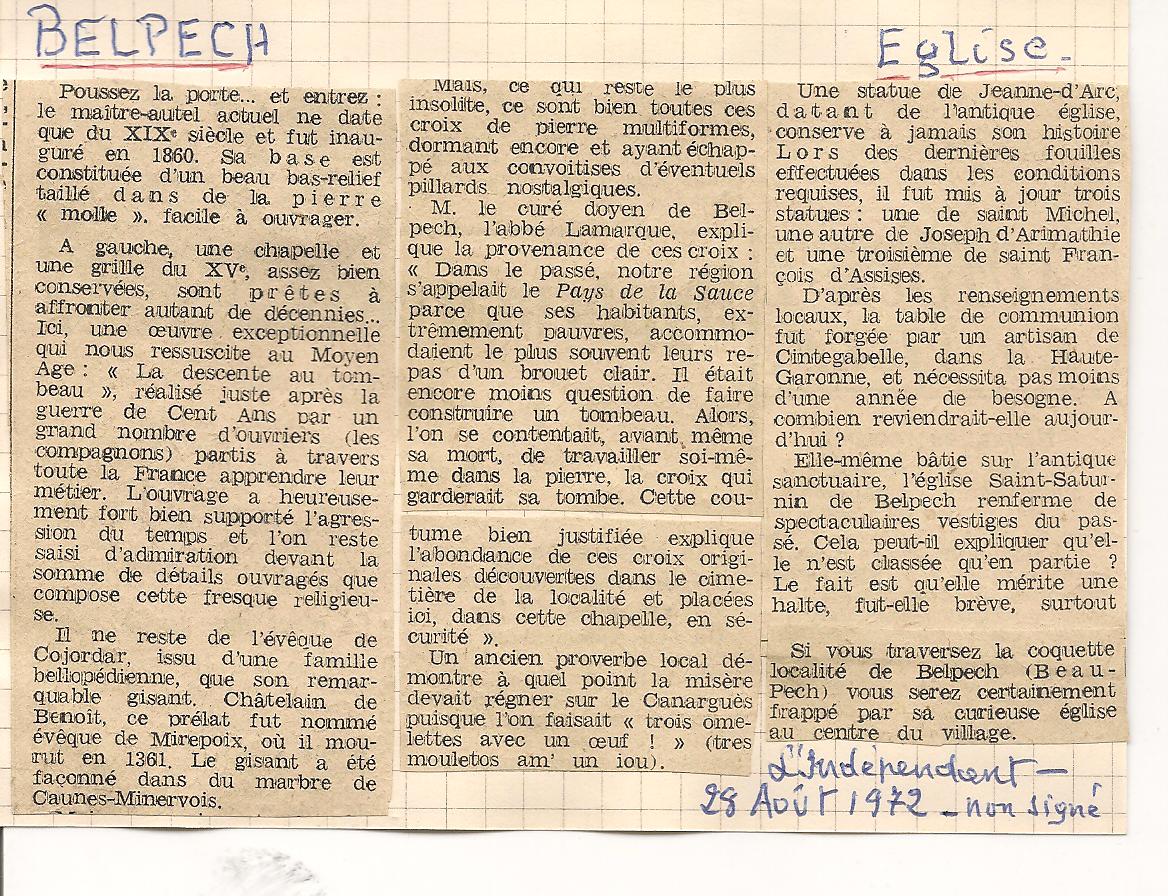 BELPECH
Eglise.
Poussez la porte... et entrez :
le maître-autel actuel ne date
que du XIXe siècle et fut inau-
guré en 1860. Sa base est
constituée d'un beau bas-relief
taillé dans de la pierre
« molle ». facile à ouvrager.
A gauche, une chapelle et
une grille du XVe, assez bien
conservées, sont prêtes à
affronter autant de décennies...
Ici, une œuvre exceptionnelle
qui nous ressuscite au Moyen
Age : « La descente au tom-
beau », réalisé juste après la
guerre de Cent Ans par un
grand nombre d'ouvriers (les
compagnons) partis à travers
toute la France apprendre leur
métier. L'ouvrage a heureuse-
ment fort bien supporté l'agres-
sion du temps et l'on reste
saisi d'admiration devant la
somme de détails ouvragés que
compose cette fresque religieu-
se.
Il ne reste de l'évêque de
Cojordar, issu d'une famille
bellopédienne, que son remar-
quable gisant. Châtelain de
Benoit, ce prélat fut nommé
évêque de Mirepoix, où il mou-
rut en 1361. Le gisant a été
façonné dans du marbre de
Caunes-Minervois.
Mais, ce qui reste le plus
insolite, ce sont bien toutes ces
croix de pierre multiformes,
dormant encore et ayant échap-
pé aux convoitises d'éventuels
pillards nostalgiques.
M. le curé doyen de Bel-
pech, l'abbé Lamarque, expli-
que la provenance de ces croix :
« Dans le passé, notre région
s'appelait le Pays de la Sauce
parce que ses habitants, ex-
trêmement pauvres, accommo-
daient le plus souvent leurs re-
pas d'un brouet clair. Il était
encore moins question de faire
construire un tombeau. Alors,
l'on se contentait, avant même
sa mort, de travailler soi-mê-
me dans la pierre, la croix qui
garderait sa tombe. Cette cou-
tume bien justifiée explique
l'abondance de ces croix origi-
nales découvertes dans le cime-
tière de la localité et placées
ici, dans cette chapelle, en sé-
curité ».
Un ancien proverbe local dé-
montre à quel point la misère
devait régner sur le Canarguès
puisque l'on faisait « trois ome-
lettes avec un œuf ! » (tres
mouletos am' un iou).
Une statue de Jeanne-d'Arc,
datant de l'antique église,
conserve à jamais son histoire
Lors des dernières fouilles
effectuées dans les conditions
requises, il fut mis à jour trois
statues : une de saint Michel,
une autre de Joseph d'Arimathie
et une troisième de saint Fran-
çois d'Assises.
D'après les renseignements
locaux, la table de communion
fut forgée par un artisan de
Cintegabelle, dans la Haute-
Garonne, et nécessita pas moins
d'une année de besogne. A
combien reviendrait-elle aujour-
d'hui ?
Elle-même bâtie sur l'antique
sanctuaire, l'église Saint-Satur-
nin de Belpech renferme de
spectaculaires vestiges du pas-
sé. Cela peut-il expliquer qu'el-
le n'est classée qu'en partie ?
Le fait est qu'elle mérite une
halte, fut-elle brève, surtout
Si vous traversez la coquette
localité de Belpech (Beau-
Pech) vous serez certainement
frappé par sa curieuse église
au centre du village.
L'Indépendant —
28 Août 1972 - non signé